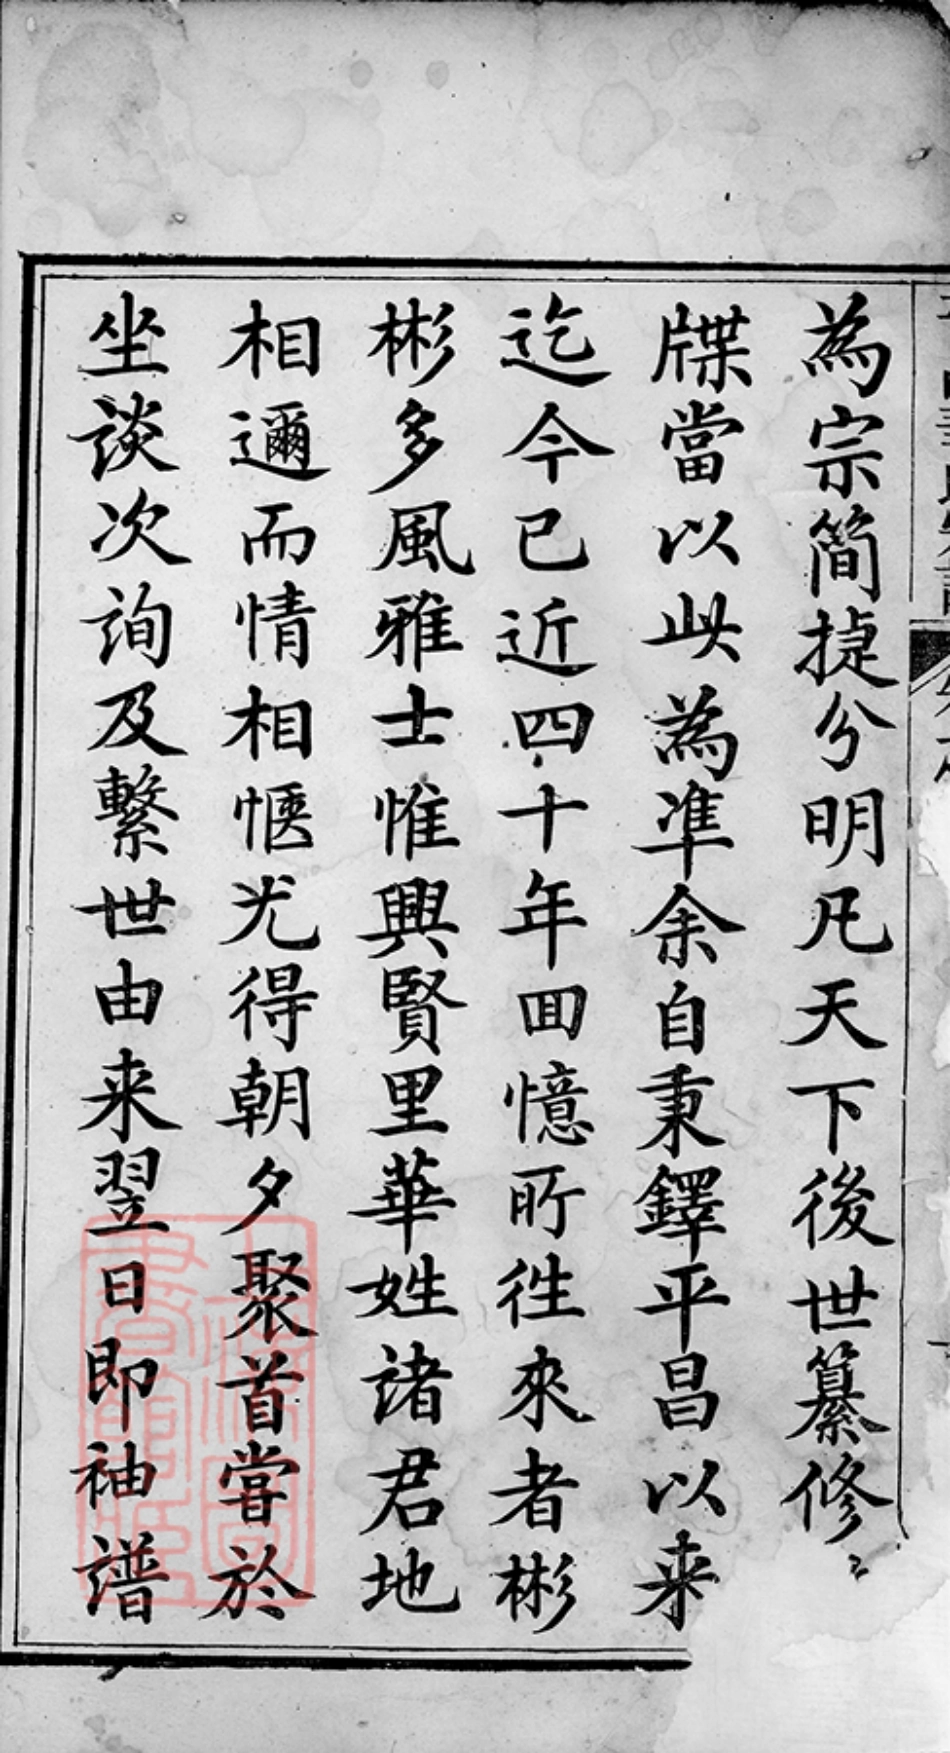 為宗簡捷分明凡天下後世纂修
牒當以此為準余自秉鐸平昌以来
迄今已近四十年回憶所往來者彬
彬多風雅士惟興賢里華姓諸君地
相邇而情相愜尤得朝夕聚首嘗於
坐談次詢及繫世由来翌日即袖譜